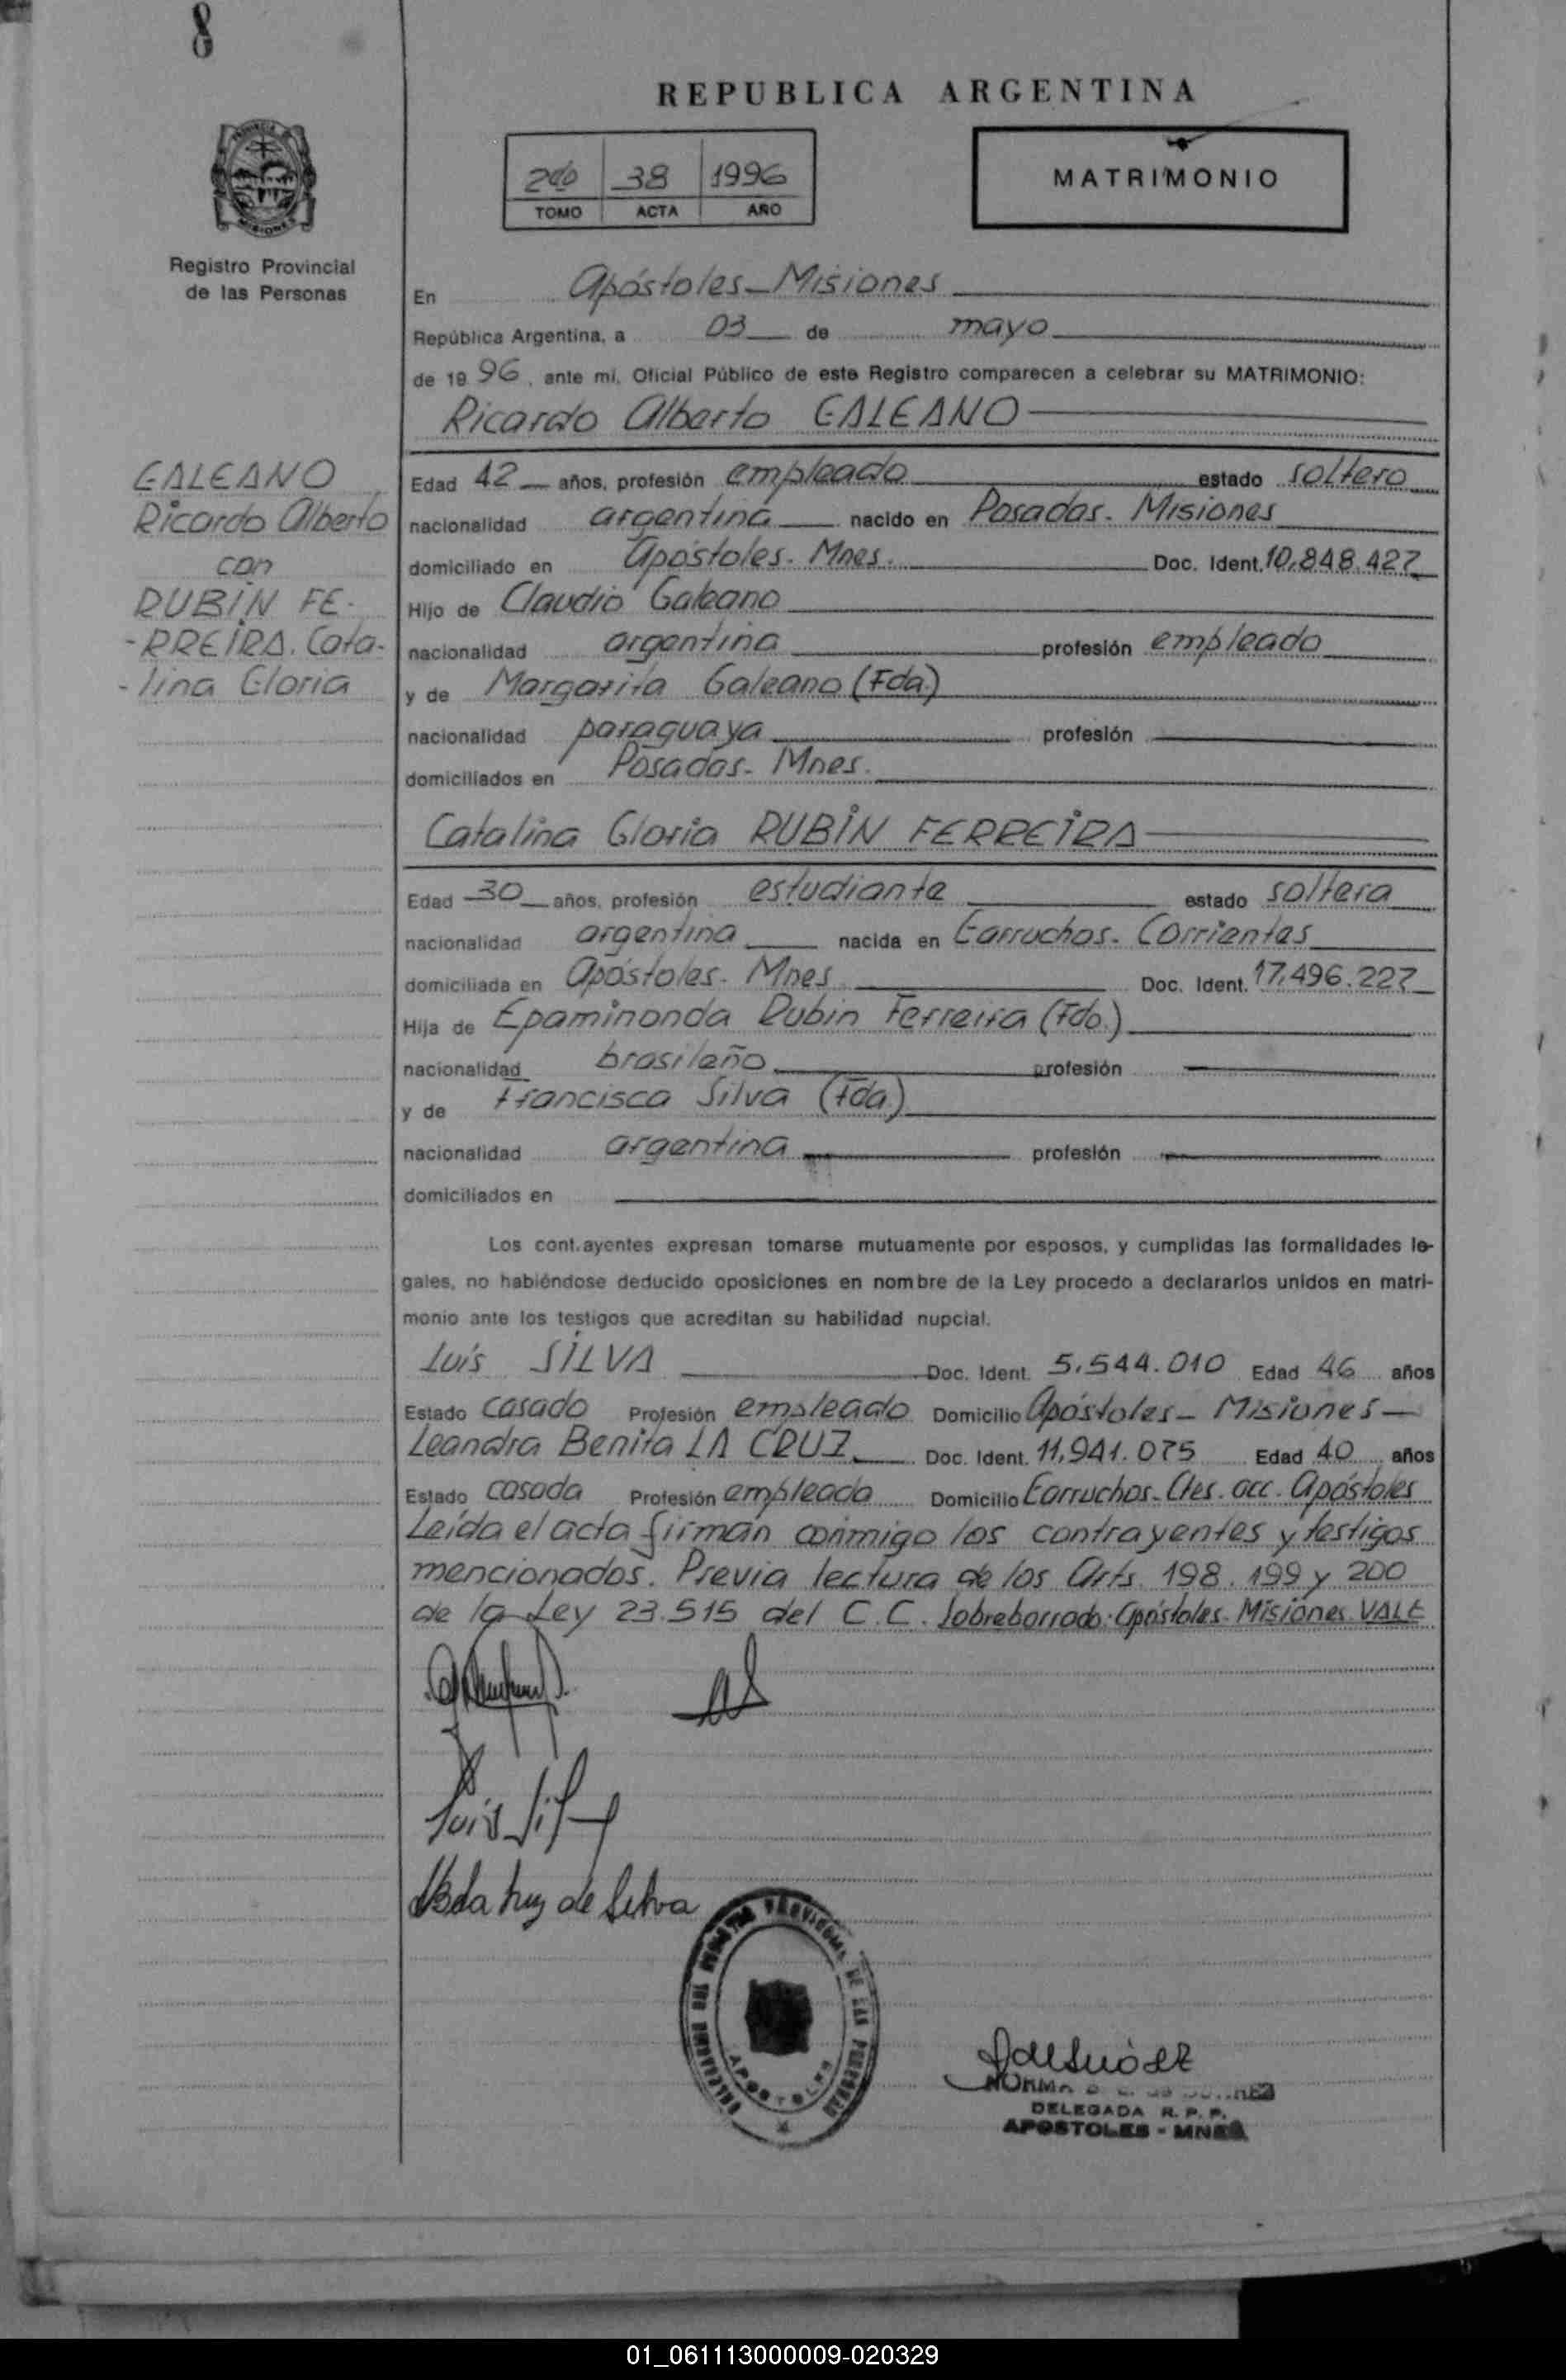 8
REPUBLICA ARGENTINA
2do 38 1996
TOMO ACTA AÑO
MATRIMONIO
Registro Provincial
de las Personas
En Apóstoles - Misiones
República Argentina, a 03 de mayo
de 1996, ante mi, Oficial Público de este Registro comparecen a celebrar su MATRIMONIO:
Ricardo Alberto GALEANO
GALEANO
Ricardo Alberto
con
RUBIN FE-
-RREIRA. Cata-
-lina Gloria
Edad 42 años, profesión empleado estado soltero
nacionalidad argentina nacido en Posadas - Misiones
domiciliado en Apóstoles - Mnes. Doc. Ident. 10.848.427
Hijo de Claudio Galeano
nacionalidad argentina profesión empleado
y de Margarita Galeano (Fda.)
nacionalidad paraguaya profesión
domiciliados en Posadas - Mnes.
Catalina Gloria RUBIN FERREIRA
Edad 30 años, profesión estudiante estado soltera
nacionalidad argentina nacida en Garruchos - Corrientes
domiciliada en Apóstoles - Mnes Doc. Ident. 17.496.227
Hija de Epaminonda Rubin Ferreira (Fdo.)
nacionalidad brasileño profesión
y de Francisca Silva (Fda.)
nacionalidad argentina profesión
domiciliados en
Los cont.ayentes expresan tomarse mutuamente por esposos, y cumplidas las formalidades le-
gales, no habiéndose deducido oposiciones en nombre de la Ley procedo a declararlos unidos en matri-
monio ante los testigos que acreditan su habilidad nupcial.
Luis SILVA Doc. Ident. 5.544.010 Edad 46 años
Estado casado Profesión empleado Domicilio Apóstoles - Misiones -
Leandra Benita LA CRUZ Doc. Ident. 11.941.075 Edad 40 años
Estado casada Profesión empleada Domicilio Garruchos - Ctes. acc. Apóstoles
Leída el acta firman conmigo los contrayentes y testigos
mencionados. Previa lectura de los Arts. 198. 199 y 200
de la Ley 23.515 del C.C. Sobreborrado: Apóstoles - Misiones. VALE
Luis Silva
de Silva
REGISTRO PROVINCIAL DE LAS PERSONAS
APOSTOLES
NORMA
DELEGADA R. P. P.
APOSTOLES - MNES
01_061113000009-020329